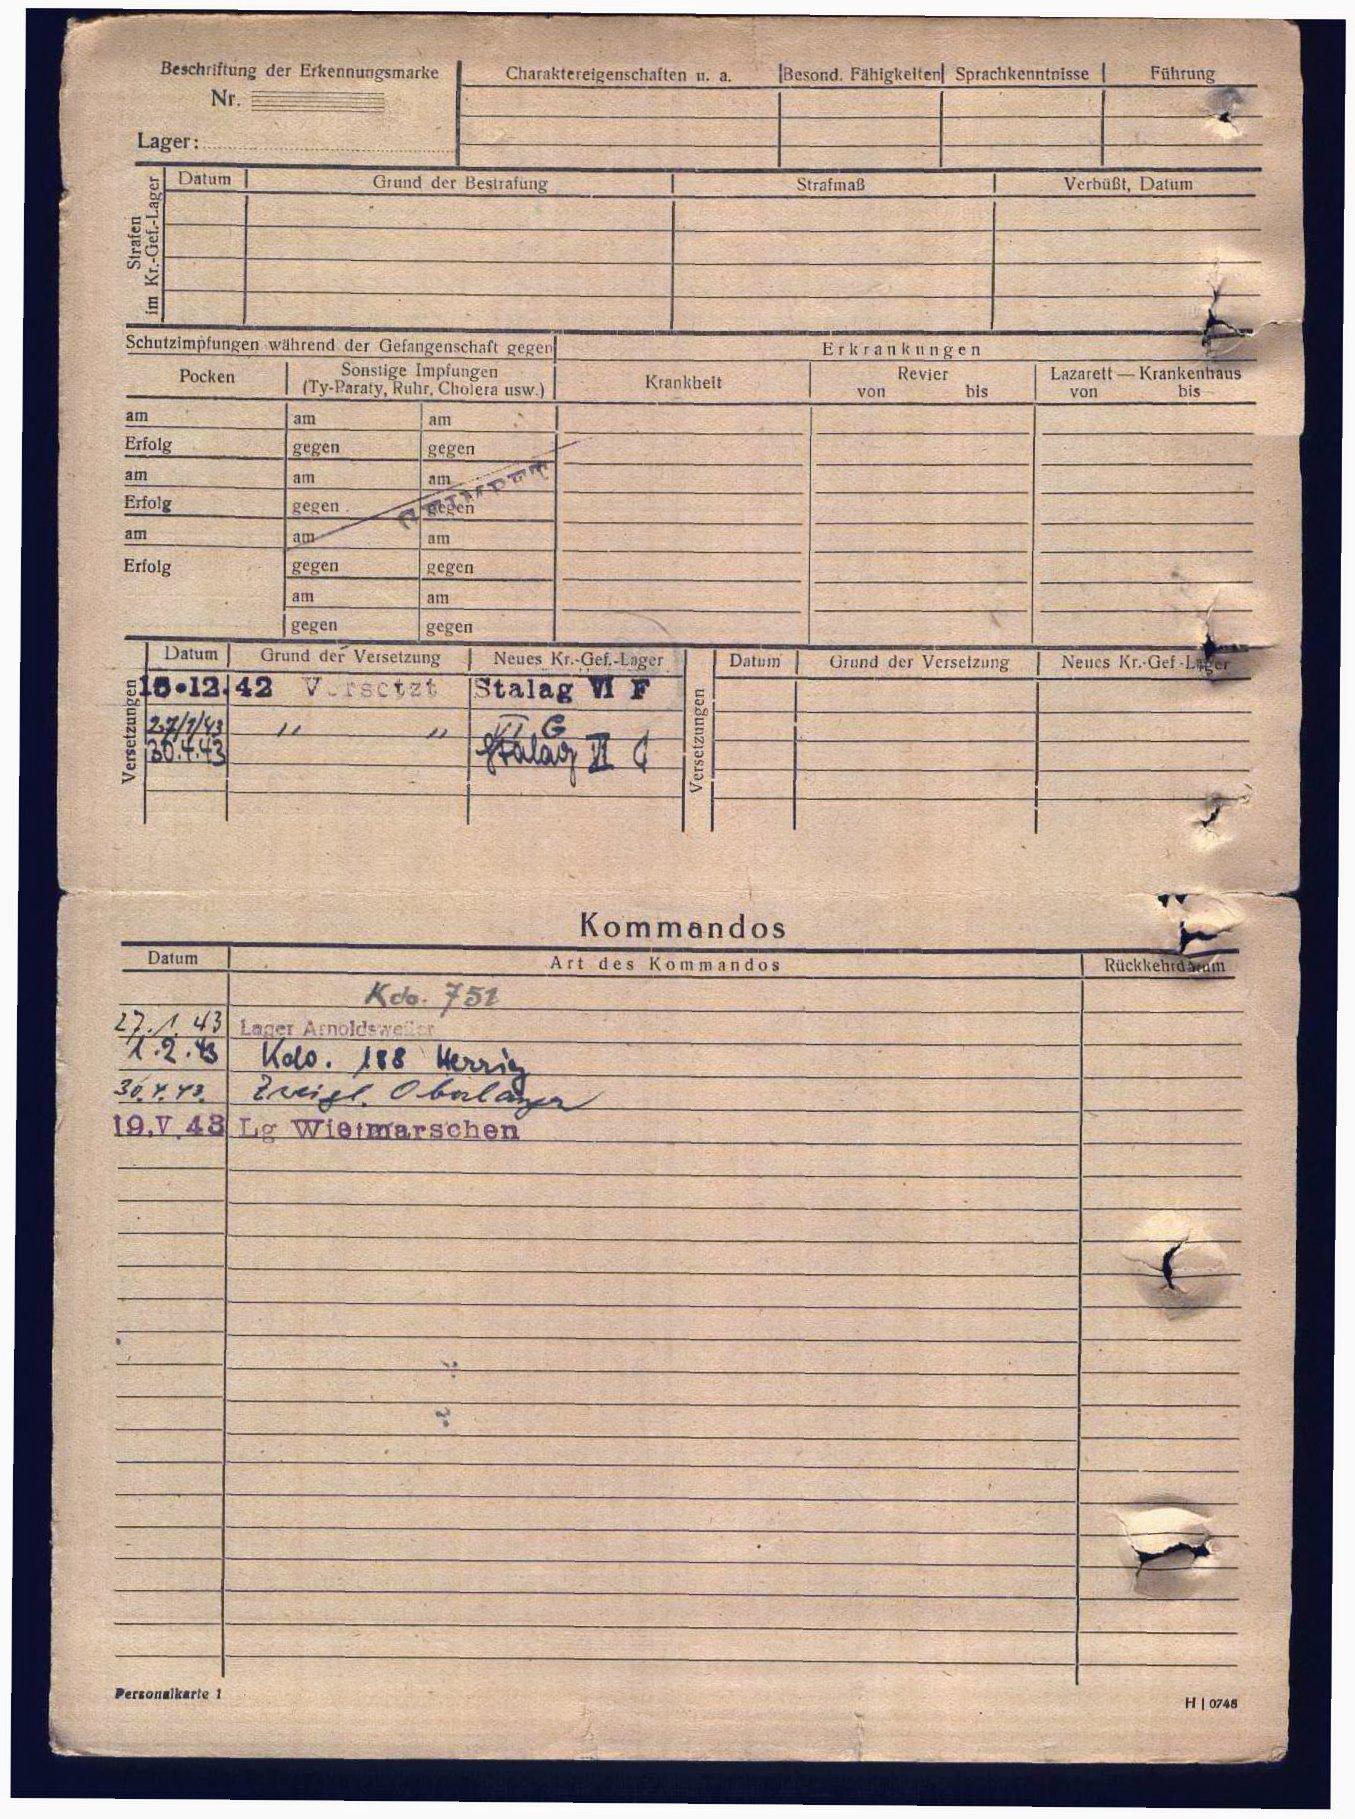 Beschriftung der Erkennungsmarke
Nr.
Lager:
Charaktereigenschaften u. a. Besond. Fähigkeiten Sprachkenntnisse Führung
Strafen
im Kr.-Gef.-Lager
Datum Grund der Bestrafung Strafmaß Verbüßt, Datum
Schutzimpfungen während der Gefangenschaft gegen
Erkrankungen
Pocken
Sonstige Impfungen
(Ty-Paraty, Ruhr, Cholera usw.)
Krankheit
Revier
von bis
Lazarett — Krankenhaus
von bis
am am am
Erfolg gegen gegen
am am am
Erfolg gegen gegen
GEIMPFT
am am am
Erfolg gegen gegen
am am
gegen gegen
Versetzungen
Datum Grund der Versetzung Neues Kr.-Gef.-Lager
15.12.42 Versetzt Stalag VI F
27/1/43 " " VI G
30.4.43 Stalag VI C
Versetzungen
Datum Grund der Versetzung Neues Kr.-Gef.-Lager
Kommandos
Datum Art des Kommandos Rückkehrdatum
Kdo. 751
27.1.43 Lager Arnoldsweiler
1.2.43 Kdo. 188 Herrig
30.4.43. Zweigl. Oberlangen
19.V.43 Lg Wietmarschen
Personalkarte 1
H | 0748